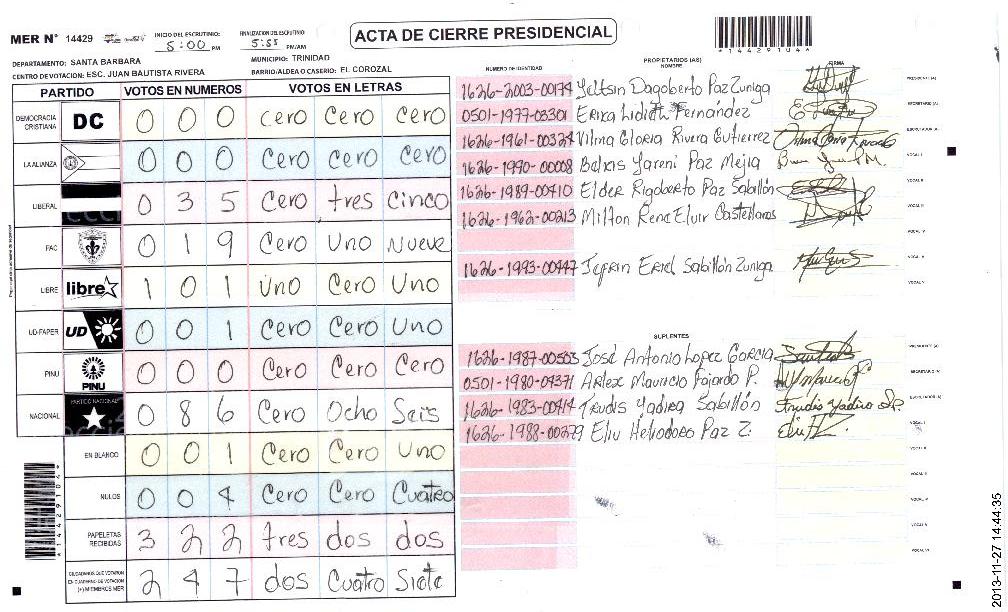 ACTA DE CIERRE PRESIDENCIAL
MER N° 14429
INICIO DEL ESCRUTINIO: 5:00 PM
FINALIZACION DEL ESCRUTINIO: 5:55 PM/AM
*14429104*
DEPARTAMENTO: SANTA BARBARA
MUNICIPIO: TRINIDAD
CENTRO DE VOTACION: ESC. JUAN BAUTISTA RIVERA
BARRIO/ALDEA O CASERIO: EL COROZAL
PARTIDO VOTOS EN NUMEROS VOTOS EN LETRAS
DEMOCRACIA CRISTIANA DC 0 0 0 Cero Cero Cero
LA ALIANZA 0 0 0 Cero Cero Cero
LIBERAL 0 3 5 Cero tres Cinco
PAC 0 1 9 Cero Uno Nueve
LIBRE libre 1 0 1 Uno Cero Uno
UD-FAPER UD 0 0 1 Cero Cero Uno
PINU PINU 0 0 0 Cero Cero Cero
NACIONAL PARTIDO NACIONAL 0 8 6 Cero Ocho Seis
EN BLANCO 0 0 1 Cero Cero Uno
NULOS 0 0 4 Cero Cero Cuatro
PAPELETAS RECIBIDAS 3 2 2 tres dos dos
CIUDADANOS QUE VOTARON EN CUADERNO DE VOTACION (+) MIEMBROS MER 2 4 7 dos Cuatro Siete
*14429104*
PROPIETARIOS (AS)
NUMERO DE IDENTIDAD NOMBRE FIRMA
1626-2003-00174 Yeltsin Dagoberto Paz Zuniga PRESIDENTE (A)
0501-1977-03301 Erica Lidieth Fernández SECRETARIO (A)
1626-1961-00324 Vilma Gloria Rivera Gutierrez ESCRUTADOR (A)
1626-1990-00008 Belkis Yareni Paz Mejia VOCAL I
1626-1989-00410 Elder Rigoberto Paz Sabillón VOCAL II
1626-1962-00213 Milton Rene Elvir Castellanos VOCAL III
VOCAL IV
1626-1993-00447 Jefrin Eriel Sabillón Zuniga VOCAL V
SUPLENTES
1626-1987-00503 José Antonio Lopez Garcia PRESIDENTE (A)
0501-1980-04371 Arlex Mauricio Fajardo P. SECRETARIO (A)
1626-1983-00414 Trudis Yadira Sabillón ESCRUTADOR (A)
1626-1988-00279 Eliu Heliodoro Paz Z. VOCAL I
VOCAL II
VOCAL III
VOCAL IV
VOCAL V
VOCAL VI
2013-11-27 14:44:35